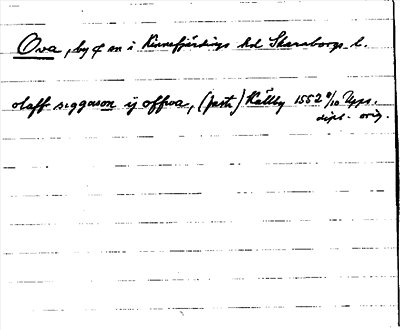 Ova, by o sn i Kinnefjärdings hd Skaraborgs l.
olaff siggeson ij offwa, (fasti) Källby 1552 8/10 Upps.
dipl. orig.